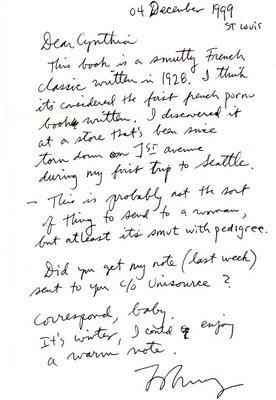 04 December 1999
ST LOUIS
Dear Cynthia
This book is a smutty French
classic written in 1928. I think
it's considered the first french porno
book written. I discovered it
at a store that's been since
torn down on 1ST avenue
during my first trip to Seattle.
- This is probably not the sort
of thing to send to a woman,
but atleast it's smut with pedigree.
Did you get my note (last week)
sent to you c/o Unisource?
Correspond, baby.
It's winter, I could enjoy
a warm note.